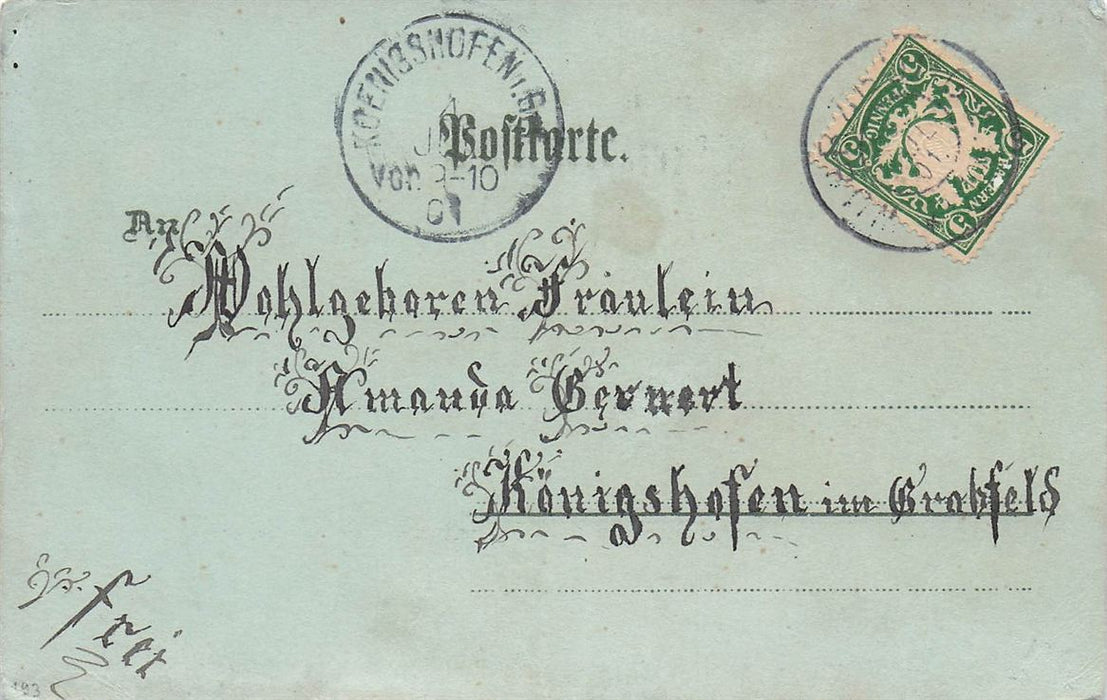 KOENIGSHOFEN i. G.
4
Vor. 9-10
01
Postkarte.
5 PFENNIG 5
BAYERN 5
An
Wohlgeboren Fräulein
Amanda Gernert
Königshofen im Grabfeld
frei
193